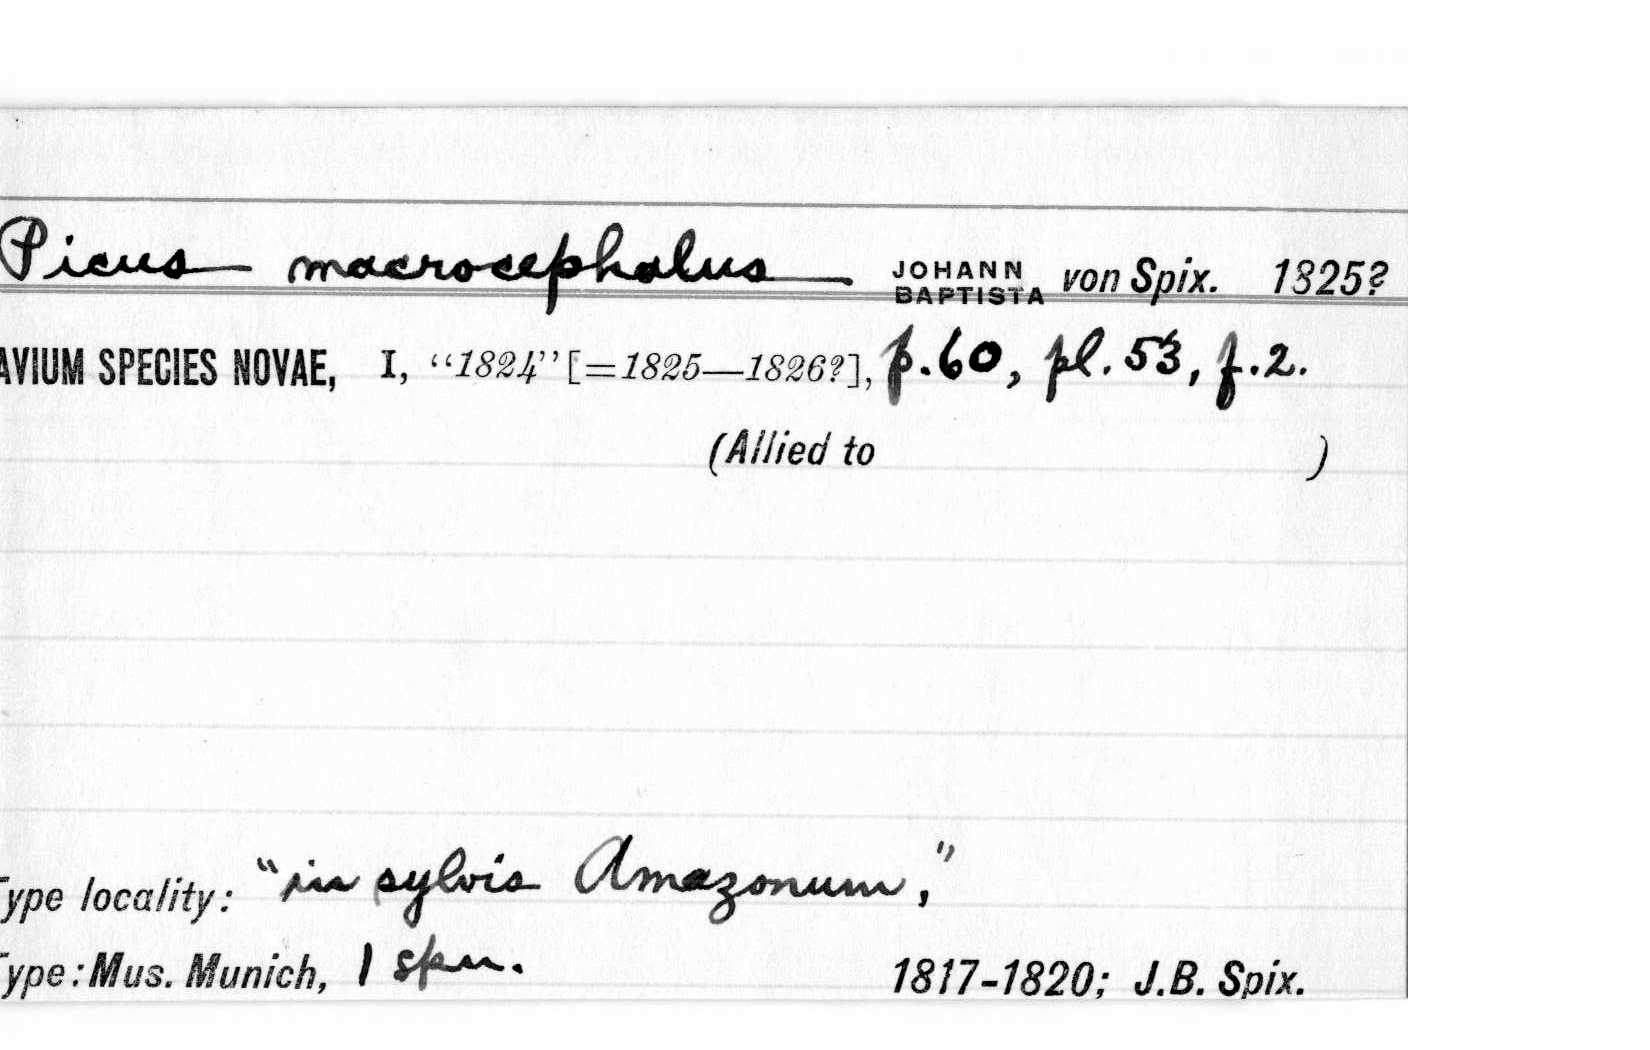 Picus macrocephalus JOHANN BAPTISTA von Spix. 1825?
AVIUM SPECIES NOVAE, I, “1824” [=1825—1826?], p.60, pl.53, f.2.
(Allied to )
Type locality: “in sylvis Amazonum,”
Type: Mus. Munich, 1 spm. 1817-1820; J.B. Spix.